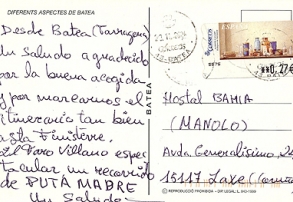 DIFERENTS ASPECTES DE BATEA
Desde Batea (Tarragona)
Un saludo agradecido
por la buena acogida
y por marcarnos el
itinerario tan bien
asta Finisterre,
El Faro Villano espec
tacular un recorrido
de PUTA MADRE
Un Saludo
BATEA
0,27€
Hostal BAHIA
(MANOLO)
Avda. Generalísimo, 24
15117 Laxe (Coruña
© REPRODUCCIÓ PROHIBIDA